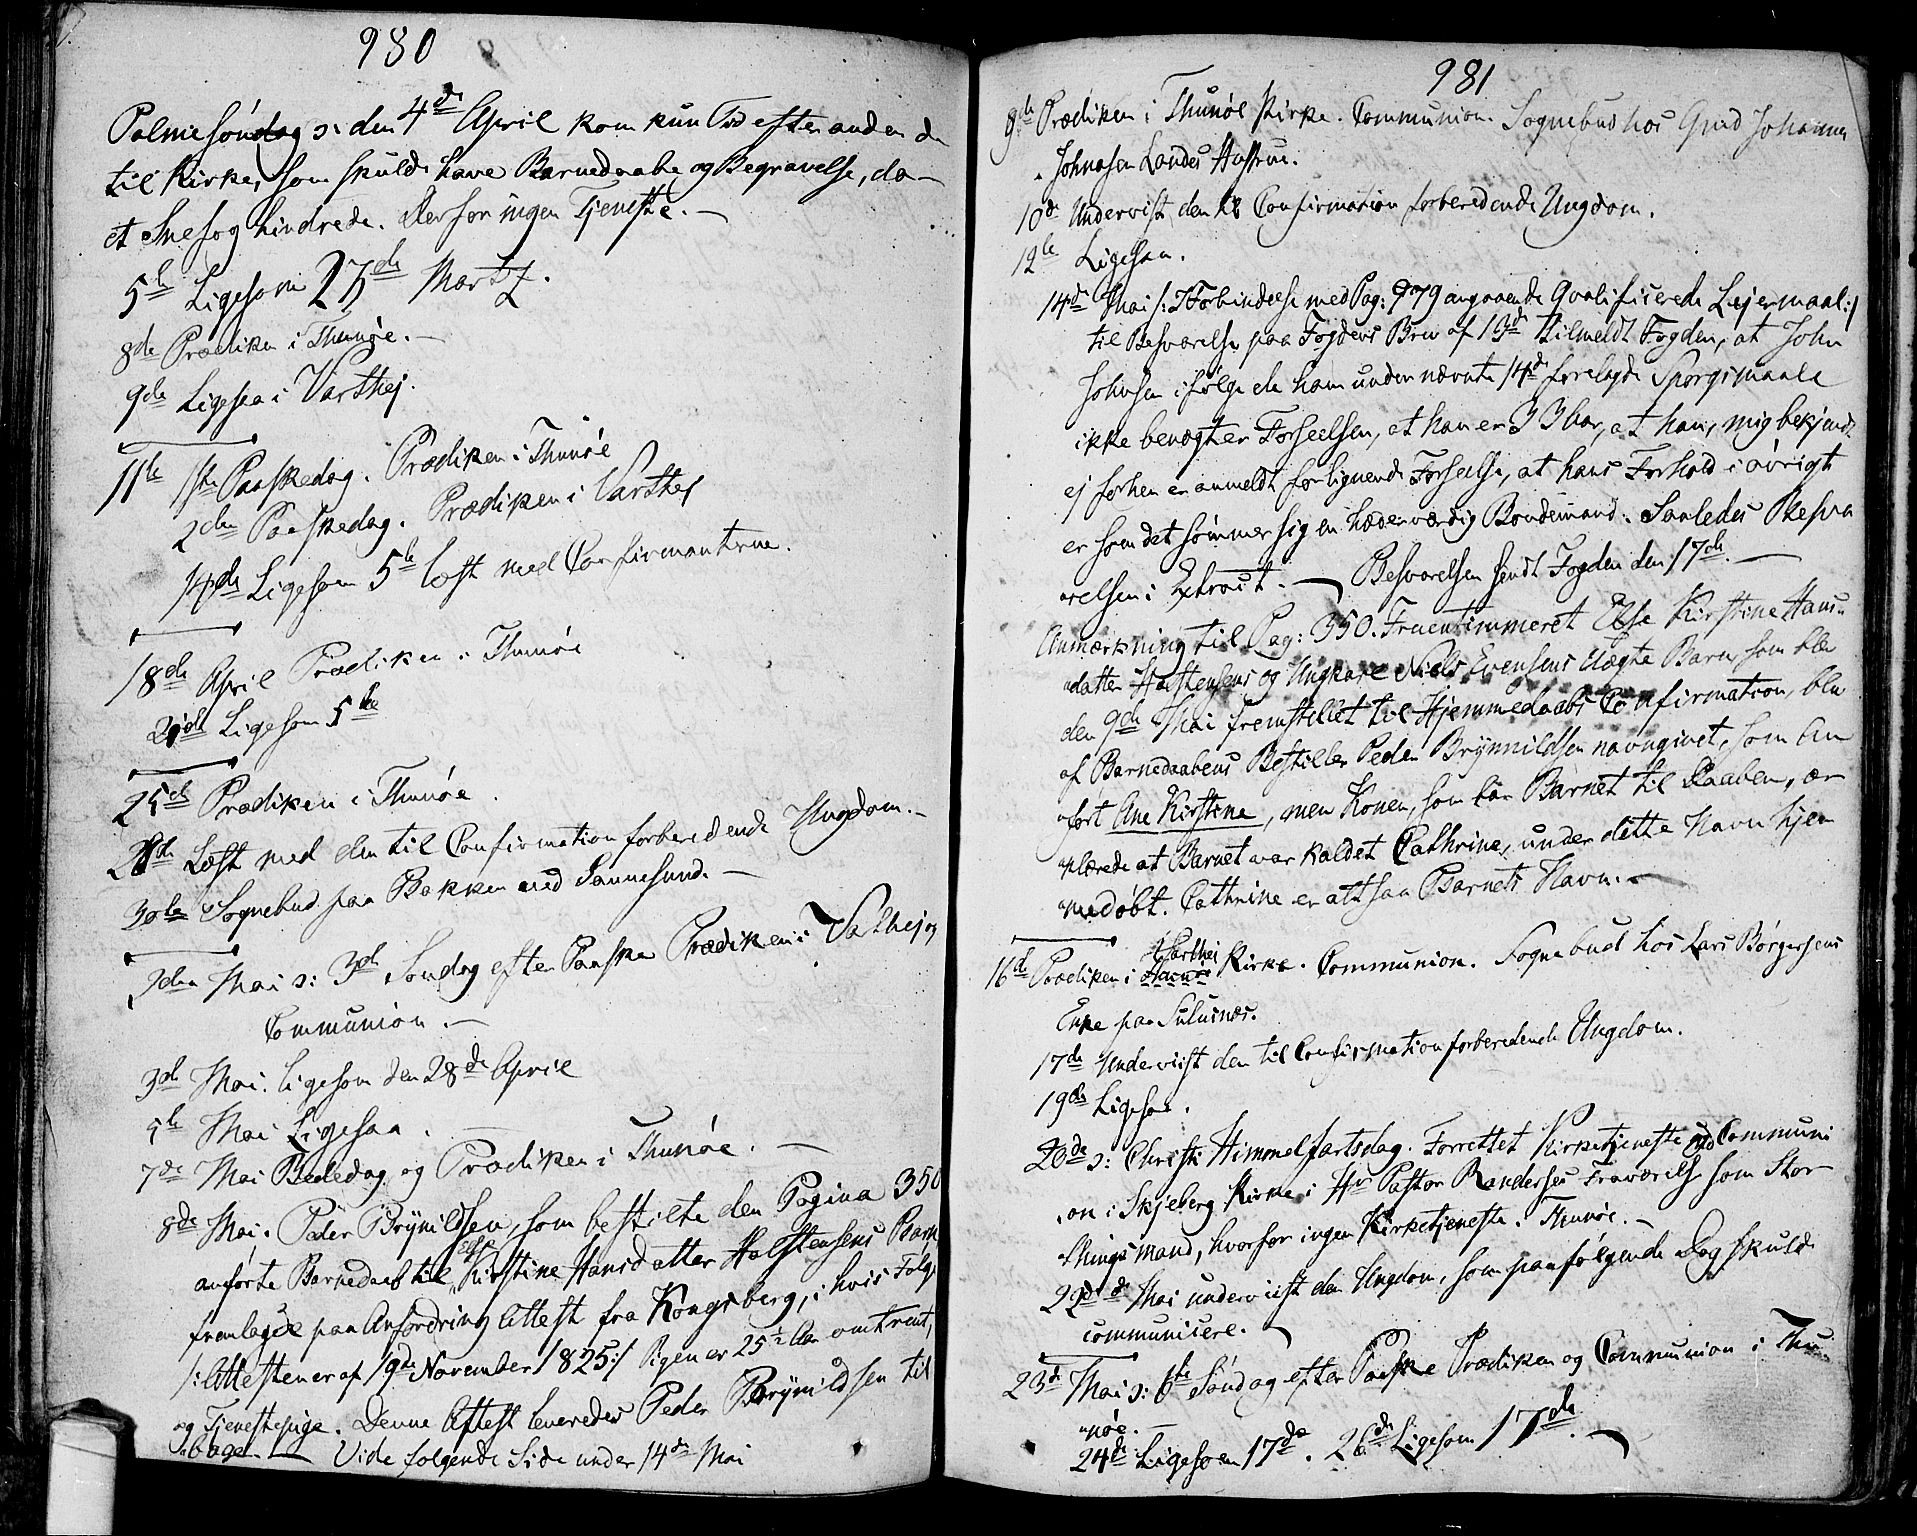 980
Palmesøndag ɔ: den 4de April kom kun Tid efter anden de
til Kirke, som skulde have Barnedaabe og Begravelse, da
et Snefog hindrede. Derfor ingen Tjeneste. —
5te Ligesom 27de Martz.
8de Prædiken i Thunøe. —
9de Ligesaa i Varthej.
11te 1ste Paaskedag. Prædiken i Thunøe
2den Paaskedag. Prædiken i Varthej
14de Ligesom 5te læst med Confirmanterne.
18de April Prædiken i Thunøe
21de Ligesom 5te
25de Prædiken i Thunøe.
28de Læst med den til Confirmation forberedende Ungdom. —
30te Sognebud paa Bakken ved Sannesund. —
2den Mai ɔ: 3de Søndag efter Paaske Prædiken i Varthej og
Communion. —
3de Mai. Ligesom den 28de April
5te Mai Ligesaa.
7de Mai Bededag og Prædiken i Thunøe. —
8de Mai. Peder Brynildsen, som bestilte den Pagina 350
anførte Barnedaab til Else Kirstine Hansdatter Halstensens Barn
fremlagde paa Anfordring Attest fra Kongsberg, i hvis Følge
/: Attesten er af 19de November 1825 :/ Pigen er 25½ Aar omtrent,
og Tjenestepige. Denne Attest leveredes Peder Brynildsen til
=bage. — Vide følgende Side under 14de Mai
981
9de Prædiken i Thunøe Kirke. Communion. Sognebud hos Grd Johannes
Johnasen Landes Hustrue.
10de Underviist den til Confirmation forberedende Ungdom.
12te Ligesaa.
14de Mai /: I Forbindelse med Pag: 979 angaaende Qvalificerede Lejermaal :/
til Besvarelse paa Fogdens Brev af 13de tilmeldt Fogden, at John
Johnsen ifølge de ham under nævnte 14de forelagde Spørgsmaale
ikke benægter Forseelsen, at han er 33 Aar, at han, mig bekjendt
ej forhen er anmeldt for lignende Forseelse, at hans Forhold i øvrigt
er som det sømmer sig en hæderværdig Bondemand. Saaledes Besva
arelsen i Extract. — Besvarelsen sendt Fogden den 17de. —
Anmærkning til Pag: 350. Fruentimmeret Else Kirstine Hans=
=datter Halstensens og Ungkarl Niels Evensens Uægte Barn som blev
den 9de Mai fremstillet til Hjemmedaabs Confirmation, blev
af Barnedaabens Bestiller Peder Brynnildsen navngivet, som An
=ført Ane Kirstine, men Konen, som bar Barnet til Daaben, er
=klærede at Barnet var kaldet Cathrine, under dette Navn hjem
=medøbt. Cathrine er altsaa Barnets Navn. —
16de Prædiken i Varthei Kirke. Communion. Sognebud hos Lars Børgersens
Enke paa Sulusnæs.
17de Underviist den til Confirmation forberedende Ungdom.
19de Ligesaa.
20de ɔ: Christi Himmelfartsdag. Forrettet Kirketjeneste og Communi
=on i Skjeberg Kirke i Hr Pastor Randerses Fraværelse som Stor
=thingsmand, hvorfor ingen Kirketjeneste i Thunøe. —
22de Mai underviist den Ungdom, som paafølgende Dag skulde
communicere. —
23de Mai ɔ: 6te Søndag efter Paaske Prædiken og Communion i Thu
=nøe. —
24de Ligesom 17de. 26de Ligesom 17de. —